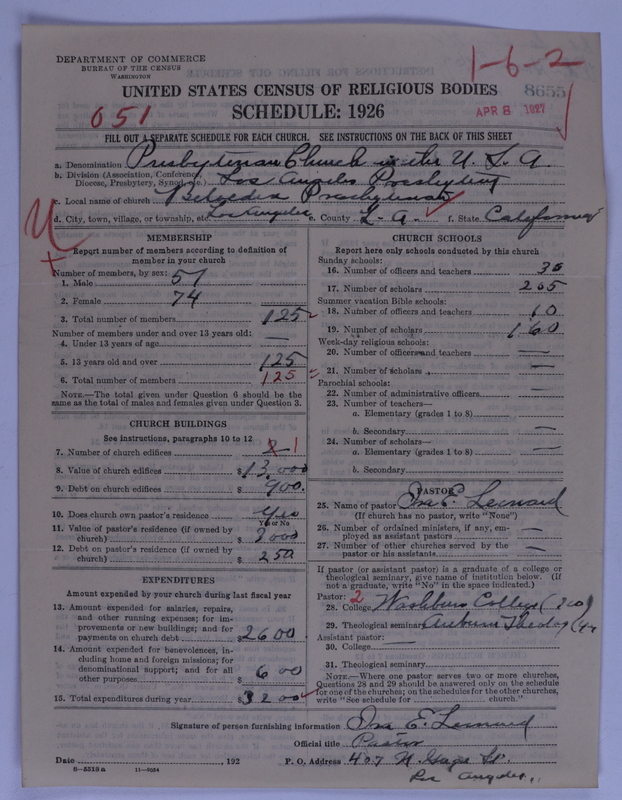 DEPARTMENT OF COMMERCE
BUREAU OF THE CENSUS
WASHINGTON
1-6-2
UNITED STATES CENSUS OF RELIGIOUS BODIES
8655
051
SCHEDULE: 1926
APR 8 1927
FILL OUT A SEPARATE SCHEDULE FOR EACH CHURCH. SEE INSTRUCTIONS ON THE BACK OF THIS SHEET
a. Denomination Presbyterian Church in the U. S. A.
b. Division (Association, Conference, Diocese, Presbytery, Synod, etc.) Los Angeles Presbytery
c. Local name of church Belvedere Presbyterian
d. City, town, village, or township, etc. Los Angeles e. County L. A. f. State California
MEMBERSHIP
Report number of members according to definition of
member in your church
Number of members, by sex:
1. Male 51
2. Female 74
3. Total number of members 125
Number of members under and over 13 years old:
4. Under 13 years of age —
5. 13 years old and over 125
6. Total number of members 125
NOTE.—The total given under Question 6 should be
same as the total of males and females given under Question 3.
CHURCH BUILDINGS
See instructions, paragraphs 10 to 12
7. Number of church edifices 1
8. Value of church edifices $ 13,000
9. Debt on church edifices $ 900.
10. Does church own pastor's residence Yes
Yes or No
11. Value of pastor's residence (if owned by
church) $ 2000
12. Debt on pastor's residence (if owned by
church) $ 250
EXPENDITURES
Amount expended by your church during last fiscal year
13. Amount expended for salaries, repairs,
and other running expenses; for im-
provements or new buildings; and for
payments on church debt 2600
14. Amount expended for benevolences, in-
cluding home and foreign missions; for
denominational support; and for all
other purposes $ 600
15. Total expenditures during year $ 3200
CHURCH SCHOOLS
Report here only schools conducted by this church
Sunday schools:
16. Number of officers and teachers 30
17. Number of scholars 205
Summer vacation Bible schools:
18. Number of officers and teachers 10
19. Number of scholars 160
Week-day religious schools:
20. Number of officers and teachers —
21. Number of scholars —
Parochial schools:
22. Number of administrative officers —
23. Number of teachers—
a. Elementary (grades 1 to 8)
b. Secondary —
24. Number of scholars—
a. Elementary (grades 1 to 8) —
b. Secondary
PASTOR
25. Name of pastor Ira E. Leonard
(If church has no pastor, write "None")
26. Number of ordained ministers, if any, em-
ployed as assistant pastors —
27. Number of other churches served by the
pastor or his assistants —
If pastor (or assistant pastor) is a graduate of a college or
theological seminary, give name of institution below. (If
not a graduate, write "No" in the space indicated.)
Pastor: 2
28. College Washburn College
29. Theological seminary Auburn Theolog
Assistant pastor:
30. College —
31. Theological seminary
NOTE.—Where one pastor serves two or more churches,
Questions 28 and 29 should be answered only on the schedule
for one of the churches; on the schedules for the other churches,
write "See schedule for church."
Signature of person furnishing information Ira E. Leonard
Official title Pastor
Date , 192 P. O. Address 407 N. Gage St.
8—5515a 11—9024
Los Angeles